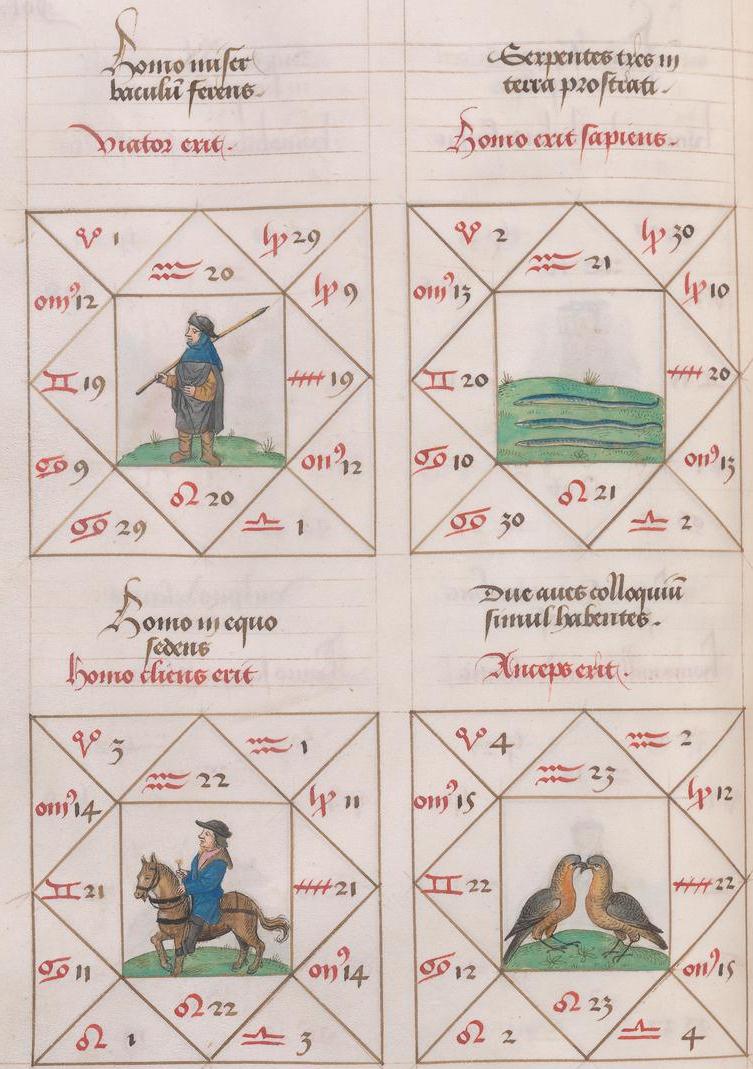 Homo miser
baculū ferens.
Viator erit.
♈ 1
♑ 29
♒ 20
12
♑ 9
♊ 19
19
♋ 9
12
♌ 20
♋ 29
♎ 1
Serpentes tres in
terra prostrati.
Homo erit sapiens.
♈ 2
♑ 30
♒ 21
13
♑ 10
♊ 20
20
♋ 10
13
♌ 21
♋ 30
♎ 2
Homo in equo
sedens
Homo cliens erit
♈ 3
♒ 1
♒ 22
14
♑ 11
♊ 21
21
♋ 11
14
♌ 22
♌ 1
♎ 3
Due aues colloquiū
simul habentes.
Anceps erit.
♈ 4
♒ 2
♒ 23
15
♑ 12
♊ 22
22
♋ 12
15
♌ 23
♌ 2
♎ 4